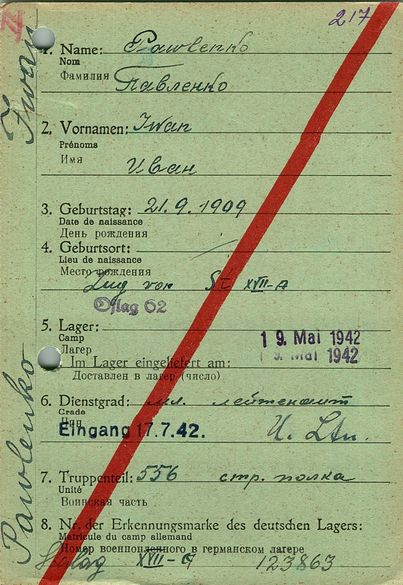 217
II
1. Name: Pawlenko
Nom
Фамилия Павленко
2. Vornamen: Iwan
Prénoms
Имя Иван
3. Geburtstag: 21.9.1909
Date de naissance
День рождения
4. Geburtsort:
Lieu de naissance
Место рождения
Zug von St XVII-A
Oflag 62
5. Lager:
Camp
Лагерь
19. Mai 1942
19. Mai 1942
Im Lager eingeliefert am:
Доставлен в лагерь (число)
6. Dienstgrad: мл. лейтенант
Grade
Чин
Eingang 17.7.42. U. Ltn.
7. Truppenteil: 556 стр. полка
Unité
Воинская часть
8. Nr. der Erkennungsmarke des deutschen Lagers:
Matricule du camp allemand
Номер военнопленного в германском лагере
Stalag XVII-A 123863
Pawlenko Iwan